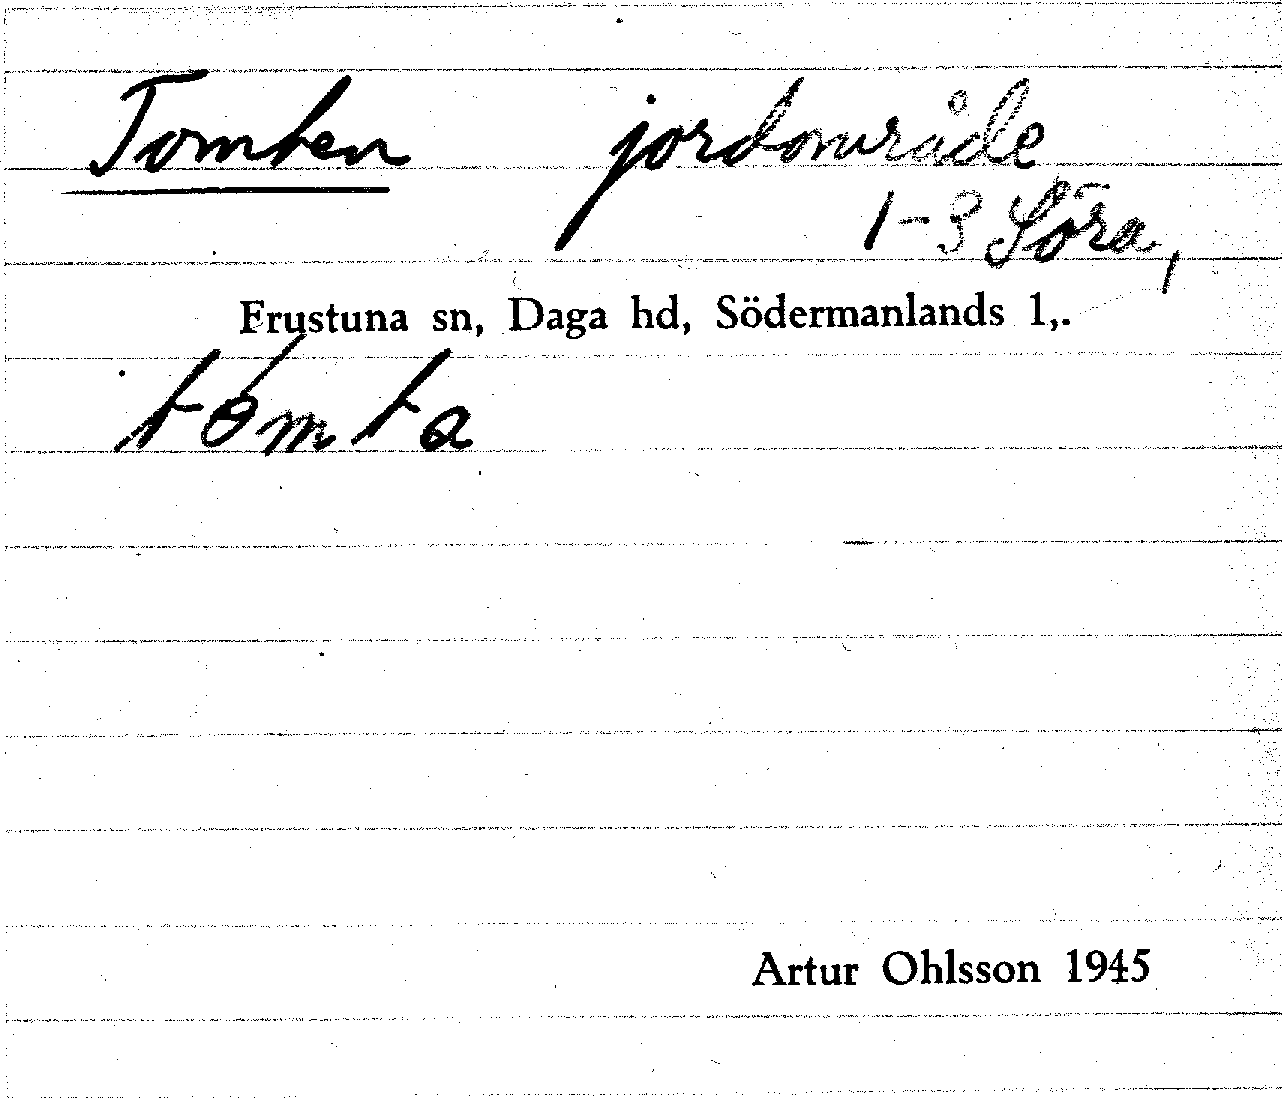 Tomten jordområde
1-3 Söra,
Frustuna sn, Daga hd, Södermanlands l,.
tómta
Artur Ohlsson 1945